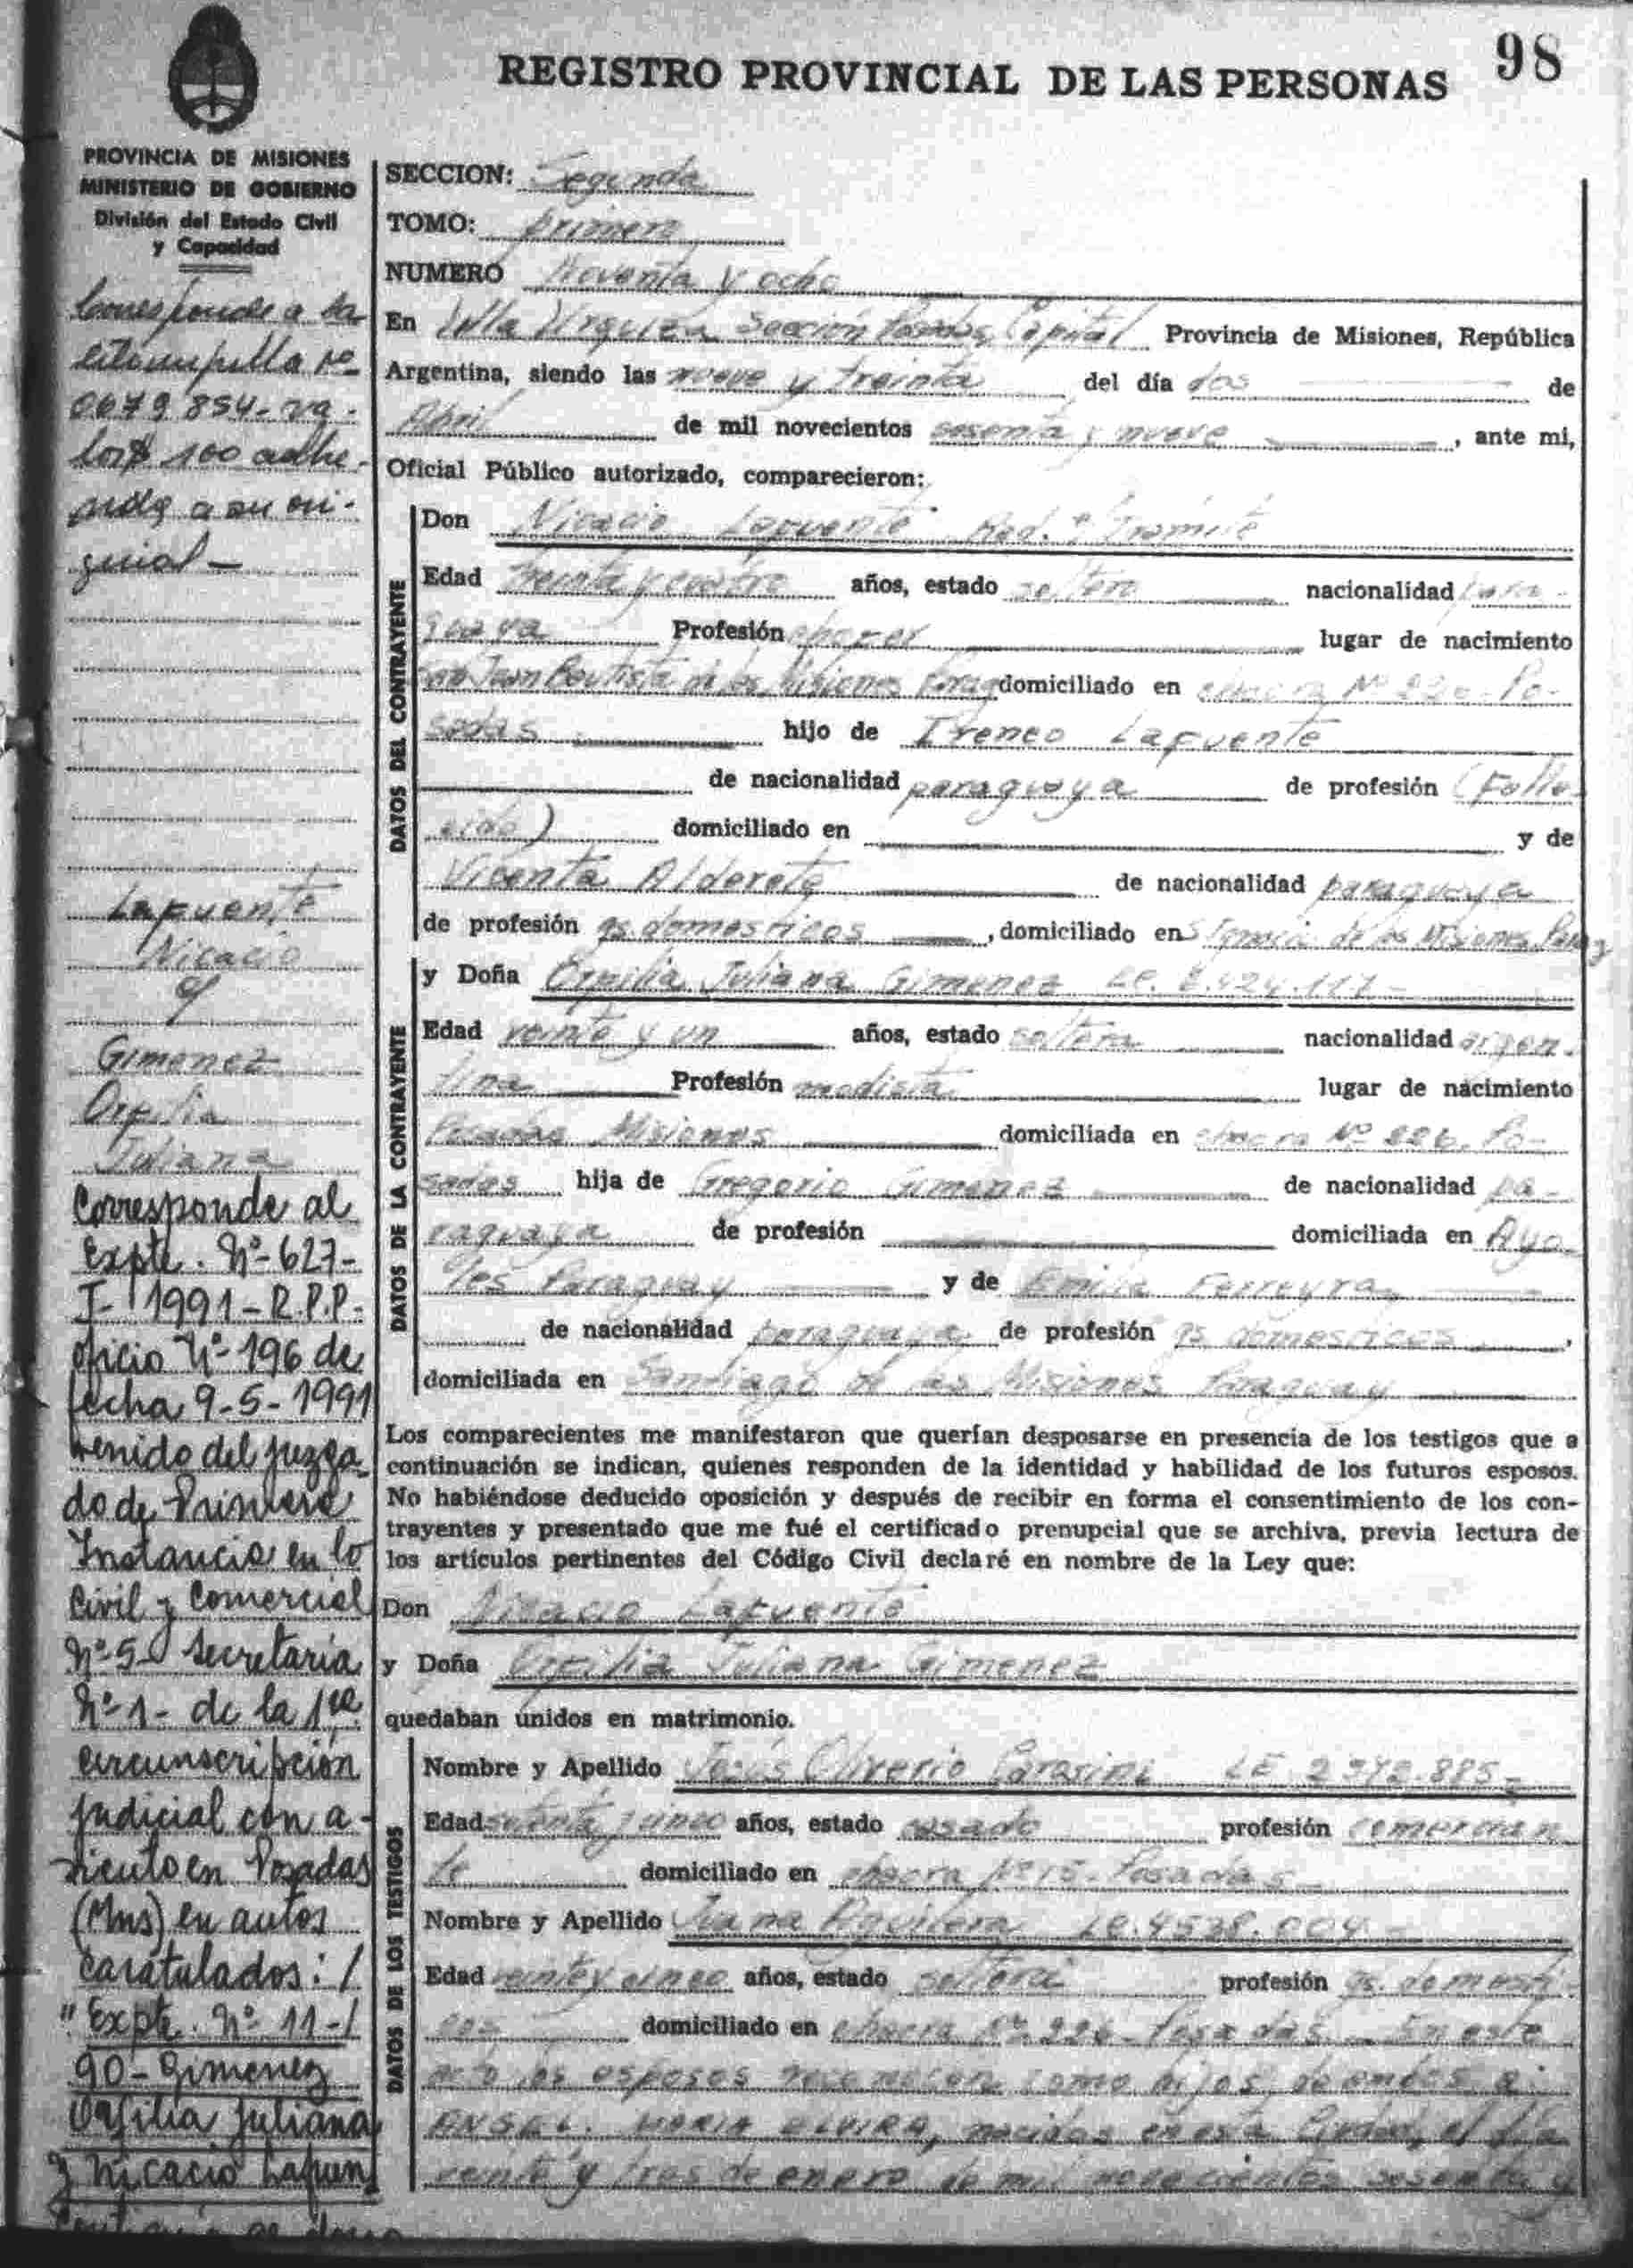 98
REGISTRO PROVINCIAL DE LAS PERSONAS
PROVINCIA DE MISIONES
MINISTERIO DE GOBIERNO
División del Estado Civil
y Capacidad
Corresponde a la
estampilla Nº
0679.854- va-
lor $ 100 adhe-
rida a su ori-
ginal -
Lapuente
Nicacio
c/
Gimenez
Orfilia
Juliana
Corresponde al
Expte. Nº 627-
J- 1991- R.P.P.
oficio Nº 196 de
fecha 9-5-1991
venido del Juzga-
do de Primera
Instancia en lo
Civil y Comercial
Nº 5 Secretaria
Nº 1- de la 1ra
circunscripción
judicial con a-
siento en Posadas
(Mns) en autos
caratulados: /
"Expte. Nº 11-/
90- Gimenez
Orfilia Juliana
y Nicacio Lafuen
SECCION: Segunda
TOMO: primero
NUMERO Noventa y ocho
En Villa Urquiza Sección Posadas Capital Provincia de Misiones, República
Argentina, siendo las nueve y treinta del día dos de
Abril de mil novecientos sesenta y nueve, ante mi,
Oficial Público autorizado, comparecieron:
DATOS DEL CONTRAYENTE
Don Nicacio Lapuente Rad. e/ tramite
Edad treinta y cuatro años, estado soltero nacionalidad para-
guaya Profesión chofer lugar de nacimiento
San Juan Bautista de las Misiones Parag domiciliado en chacra Nº Po-
sadas hijo de Ireneo Lafuente
de nacionalidad paraguaya de profesión (Falle-
cido) domiciliado en y de
Vicenta Alderete de nacionalidad paraguaya
de profesión qs. domesticos, domiciliado en S. Ignacio de las Misiones Parag
DATOS DE LA CONTRAYENTE
y Doña Orfilia Juliana Gimenez LC. 6.424.117-
Edad veinte y un años, estado soltera nacionalidad argen-
tina Profesión modista lugar de nacimiento
Posadas Misiones domiciliada en chacra Nº 226. Po-
sadas hija de Gregorio Gimenez de nacionalidad pa-
raguaya de profesión domiciliada en Ayo-
les Paraguay y de Emilia Ferreyra
de nacionalidad paraguaya de profesión qs domesticos,
domiciliada en Santiago de las Misiones Paraguay
Los comparecientes me manifestaron que querían desposarse en presencia de los testigos que a
continuación se indican, quienes responden de la identidad y habilidad de los futuros esposos.
No habiéndose deducido oposición y después de recibir en forma el consentimiento de los con-
trayentes y presentado que me fué el certificado prenupcial que se archiva, previa lectura de
los artículos pertinentes del Código Civil declaré en nombre de la Ley que:
Don Nicacio Lafuente
y Doña Orfilia Juliana Gimenez
quedaban unidos en matrimonio.
DATOS DE LOS TESTIGOS
Nombre y Apellido Jesús Oliverio LE 2.372.885-
Edad años, estado casado profesión comercian
te domiciliado en chacra Nº 15- Posadas
Nombre y Apellido Juana Aguilera LC. 4538.004-
Edad veinte y cinco años, estado soltera profesión qs. domesti-
cos domiciliado en chacra Nº 226- Posadas - En este
acto los esposos reconocen como hijos de ambos a:
ANGEL. MARIA ELVIRA, nacidos en esta Ciudad, el día
veinte y tres de enero de mil novecientos sesenta y